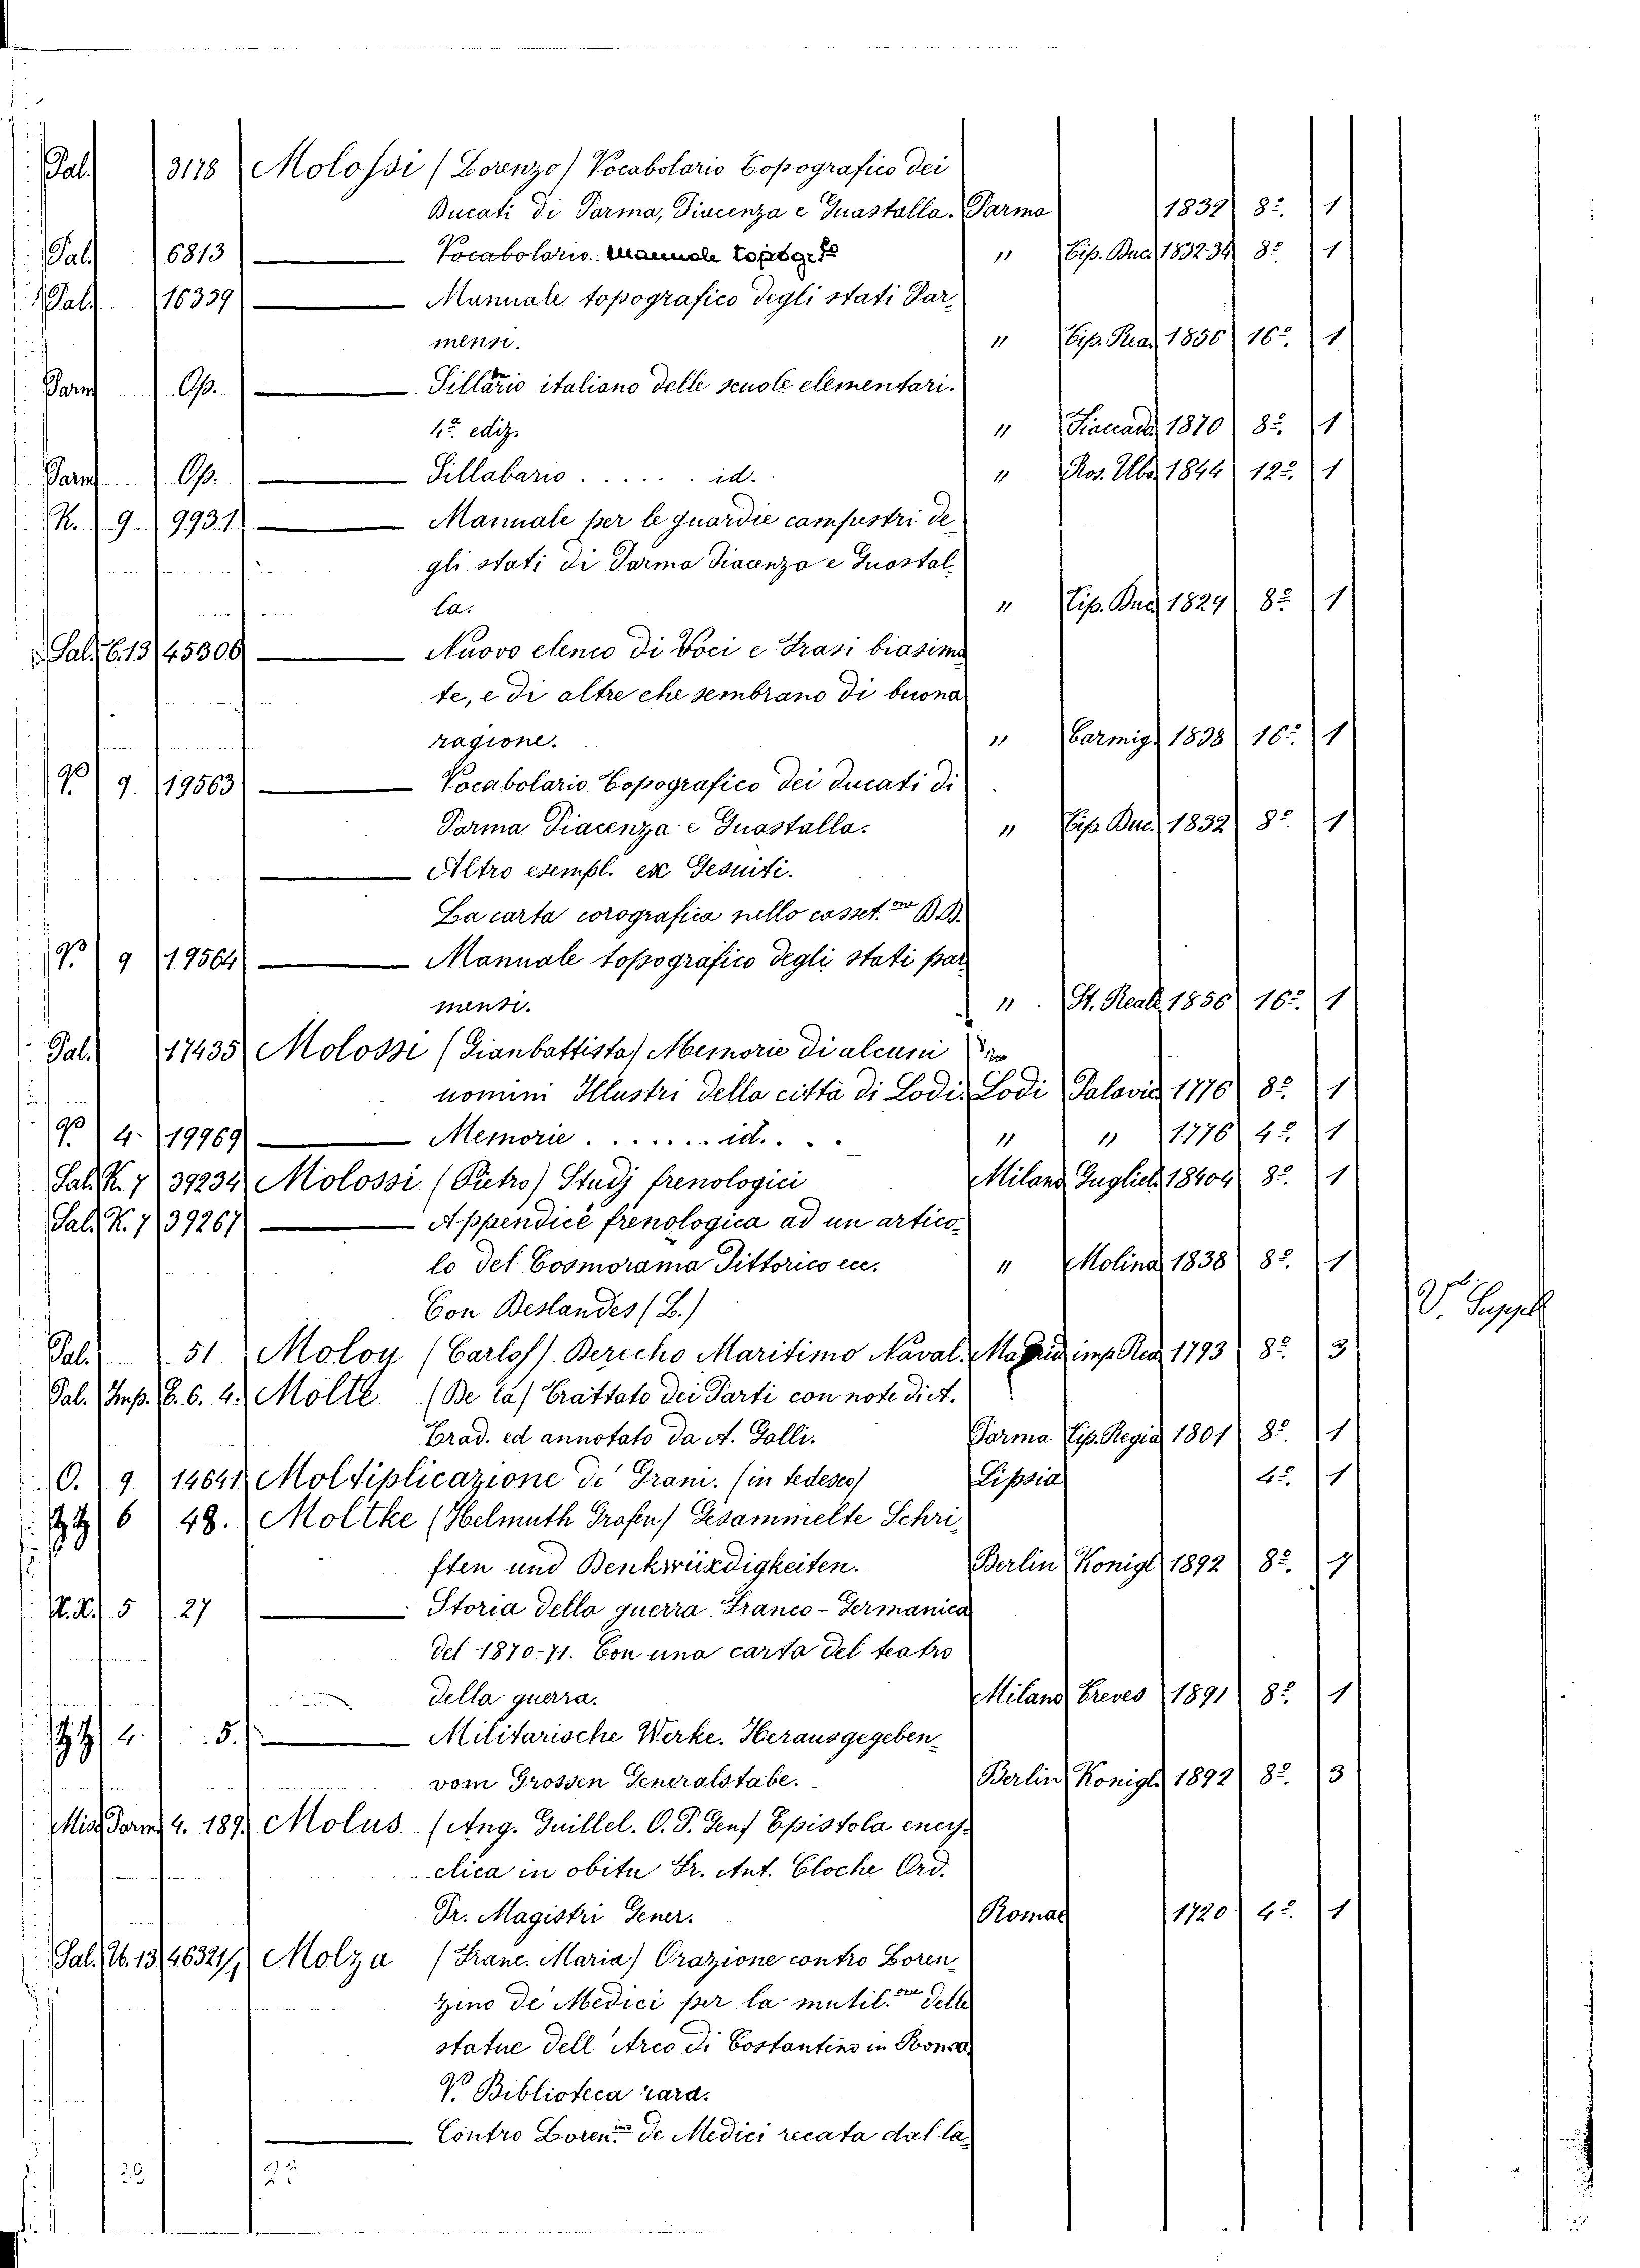 Pal. 3178 Molossi (Lorenzo) Vocabolario Topografico dei
Ducati di Parma, Piacenza e Guastalla. Parma 1832 8º. 1
Pal. 6813 Vocabolario. Manuale topogr.fo " Tip. Duc. 1832-34 8º. 1
Pal. 16339 Manuale topografico degli stati Par-
mensi. " Tip. Rea. 1856 16º. 1
Parm. Op. Sillabario italiano delle scuole elementari.
4ª. ediz. " Fiaccad. 1870 8º. 1
Parm. Op. Sillabario ...... id. " Ros. Ubi 1844 12º. 1
N. 9. 9931 Manuale per le guardie campestri de-
gli stati di Parma Piacenza e Guastal-
la. " Tip. Duc. 1829 8º 1
Sal. C.13 45306 Nuovo elenco di Voci e Frasi biasima
te, e di altre che sembrano di buona
ragione. " Carmig. 1838 16º. 1
P. 9. 19563 Vocabolario Topografico dei ducati di
Parma Piacenza e Guastalla. " Tip. Duc. 1832 8º. 1
Altro esempl. ex Gesuiti.
La carta corografica nello casset.one BB.
P. 9 19564 Manuale topografico degli stati par
mensi. " St. Reale 1856 16º. 1
Pal. 17435 Molossi (Gianbattista) Memorie di alcuni
uomini Illustri della città di Lodi. Lodi Palavic. 1776 8º. 1
P. 4. 19969 Memorie ....... id. . . . " " 1776 4º. 1
Sal. K. 7 39234 Molossi (Pietro) Studj frenologici Milano Guglielm. 1840 8º. 1
Sal. K. 7 39267 Appendice frenologica ad un artico-
lo del Cosmorama Pittorico ecc. " Molina 1838 8º. 1
Con Beslandes (L.) V. Suppell
Pal. 51 Moloy (Carlos) Derecho Maritimo Naval. Madrid imp. Rea. 1793 8º. 3
Pal. Imp. C. 6. 4. Molte (De la) Trattato dei Parti con note di ct.
Trad. ed annotato da A. Galli. Parma Tip. Regia 1801 8º. 1
O. 9 14641 Moltiplicazione de' Grani. (in tedesco) Lipsia 4º. 1
6 48. Moltke (Helmuth Grafen) Gesammelte Schri-
ften und Denkwürdigkeiten. Berlin Königl. 1892 8º. 7
5 27 Storia della guerra Franco-Germanica
del 1870-71. Con una carta del teatro
della guerra. Milano Treves 1891 8º. 1
4. 5. Militärische Werke. Herausgegeben-
vom Grossen Generalstabe. Berlin Königl. 1892 8º. 3
Misc. Parm. 4. 189. Molus (Aug. Guillel. O. P. Gen.) Epistola ency-
clica in obitu Fr. Ant. Cloche Ord.
Pr. Magistri Gener. Romae 1720 4º. 1
Sal. Ub. 13 46321/1 Molza (Franc. Maria) Orazione contro Loren-
zino de Medici per la mutil.one delle
statue dell'Arco di Costantino in Roma.
V. Biblioteca rara.
Contro Loren.ino de Medici recata dal la